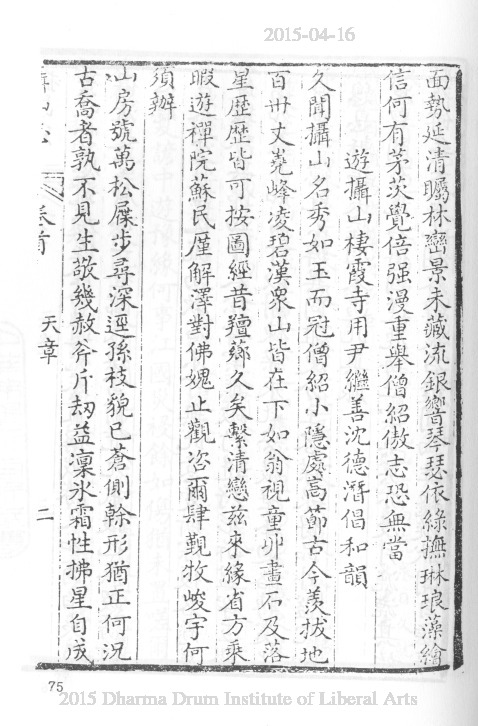 2015-04-16
面勢延清矚林巒景未藏流銀響琴瑟依綠撫琳琅藻繪
信何有茅茨覺倍强漫重舉僧紹傲志恐無當
遊攝山棲霞寺用尹繼善沈德潛倡和韻
久聞攝山名秀如玉而冠僧紹小隱處高節古今羨拔地
百卅丈嶤峰凌碧漢衆山皆在下如翁視童丱畫石及落
星歷歷皆可按圖經昔攟薌久矣繫清戀茲來緣省方乘
暇遊禪院蘇民厪解澤對佛媿止觀咨爾肆覲牧峻宇何
須辦
山房號萬松屧步尋深逕孫枝貌已蒼側榦形猶正何況
古喬者孰不見生敬幾赦斧斤劫益凜氷霜性拂星自成
卷首
天章
二
75
2015 Dharma Drum Institute of Liberal Arts